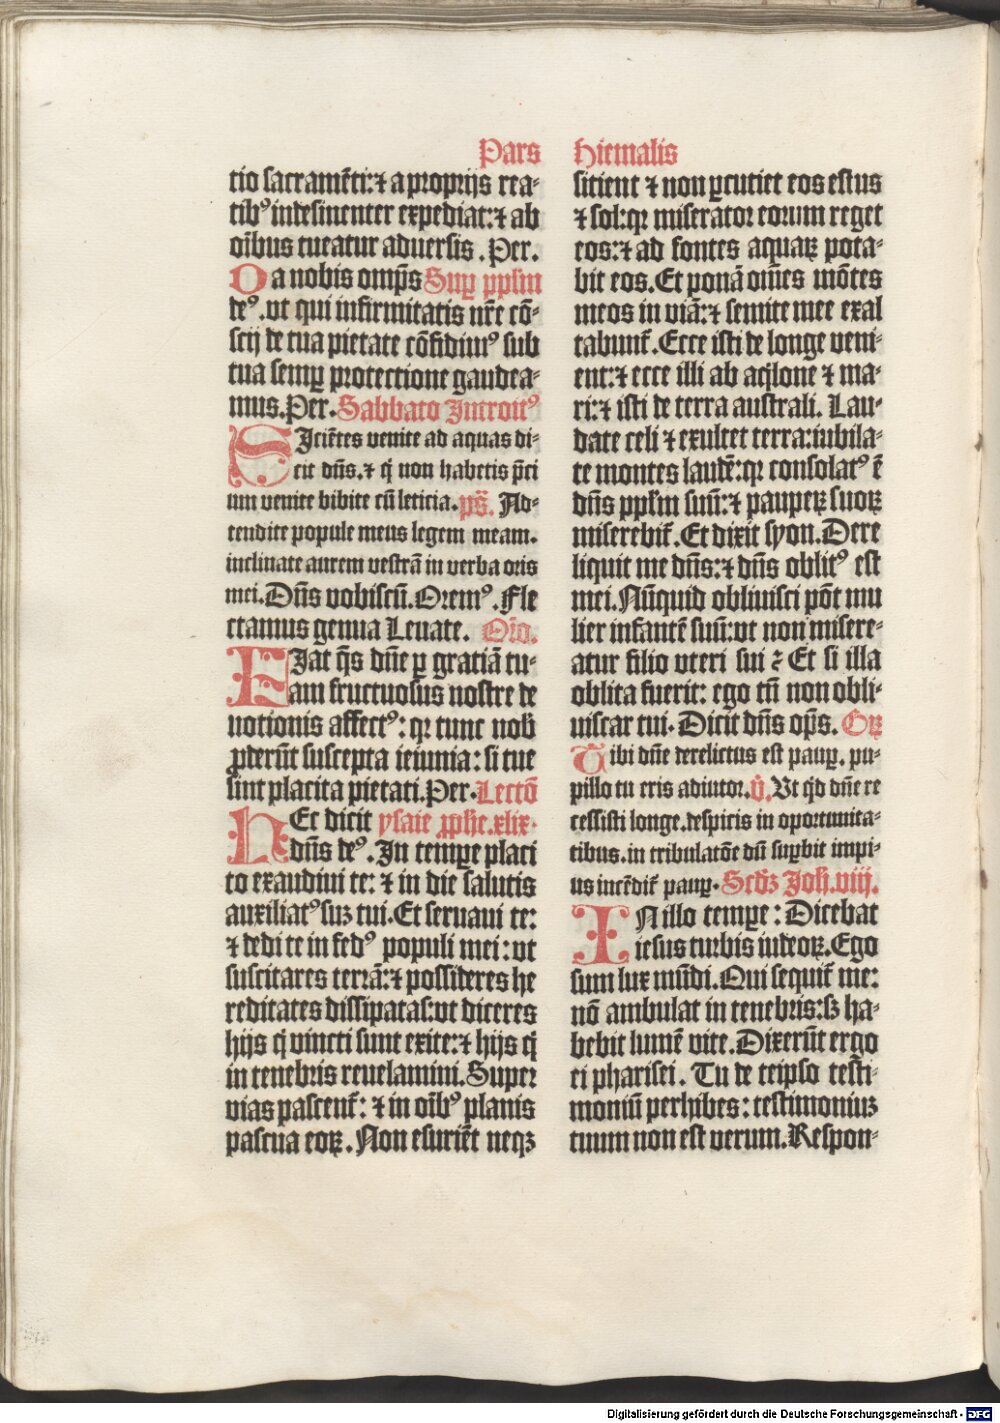 Pars Hiemalis
tio sacramēti:⁊ a proprijs rea⸗
tibꝰ indesinenter expediat:⁊ ab
oībus tueatur aduersis. Per.
Da nobis omp̄s Suꝑ pplm
deꝰ.vt qui infirmitatis nr̄e cō⸗
scij de tua pietate cōfidimꝰ sub
tua semꝑ protectione gaudea⸗
mus.Per. Sabbato Introitꝰ
SIciētes venite ad aquas di⸗
cit dn̄s.⁊ q̇ non habetis p̄ci
um venite bibite cū leticia. ps̄. Ad⸗
tendite popule meus legem meam.
inclinate aurem vestrā in verba oris
mei. Dn̄s vobiscū. Oremꝰ. Fle
ctamus genua Leuate. Orō.
FIat q̄s dn̄e ꝑ gratiā tu⸗
am fructuosus nostre de
uotionis affectꝰ: qꝛ tunc nob̄
ꝓderūt suscepta ieiunia: si tue
sint placita pietati. Per. Lectō
HEc dicit ysaie ꝓphe.xlix.
dn̄s deꝰ. In tempe placi
to exaudiui te: ⁊ in die salutis
auxiliatꝰ suꝫ tui. Et seruaui te:
⁊ dedi te in fedꝰ populi mei: vt
suscitares terrā:⁊ possideres he
reditates dissipatas:vt diceres
hijs q̇ vincti sunt exite:⁊ hijs q̇
in tenebris reuelamini. Super
vias pascent᷑: ⁊ in oībꝰ planis
pascua eoꝝ. Non esuriēt neqꝫ
sitient ⁊ non ꝑcutiet eos estus
⁊ sol:qꝛ miserator eorum reget
eos:⁊ ad fontes aquaꝝ pota⸗
bit eos. Et ponā om̄es mōtes
meos in viā:⁊ semite mee exal
tabunt᷑. Ecce isti de longe veni⸗
ent:⁊ ecce illi ab aq̇lone ⁊ ma⸗
ri:⁊ isti de terra australi. Lau⸗
date celi ⁊ exultet terra:iubila⸗
te montes laudē:qꝛ consolatꝰ ē
dn̄s pplm suū:⁊ pauperꝝ suoꝝ
miserebit᷑. Et dixit syon. Dere
liquit me dn̄s:⁊ dn̄s oblitꝰ est
mei. Nūquid obliuisci pōt mu
lier infantē suū:vt non misere⸗
atur filio vteri sui ? Et si illa
oblita fuerit: ego tn̄ non obli⸗
uiscar tui. Dicit dn̄s op̄s. Grꝝ
Tibi dn̄e derelictus est pauꝑ. pu⸗
pillo tu eris adiutor. v̇. Vt q̇d dn̄e re
cessisti longe.despicis in oportunita⸗
tibus.in tribulatōe dū suꝑbit impi⸗
us incēdit᷑ pauꝑ. Scd̄ꝫ Joh̄.viij.
IN illo tempe: Dicebat
iesus turbis iudeoꝝ. Ego
sum lux mūdi. Qui sequit᷑ me:
nō ambulat in tenebris:sꝫ ha⸗
bebit lumē vite. Dixerūt ergo
ei pharisei. Tu de teipso testi⸗
moniū perhibes: testimoniuꝫ
tuum non est verum. Respon⸗
Digitalisierung gefördert durch die Deutsche Forschungsgemeinschaft - DFG